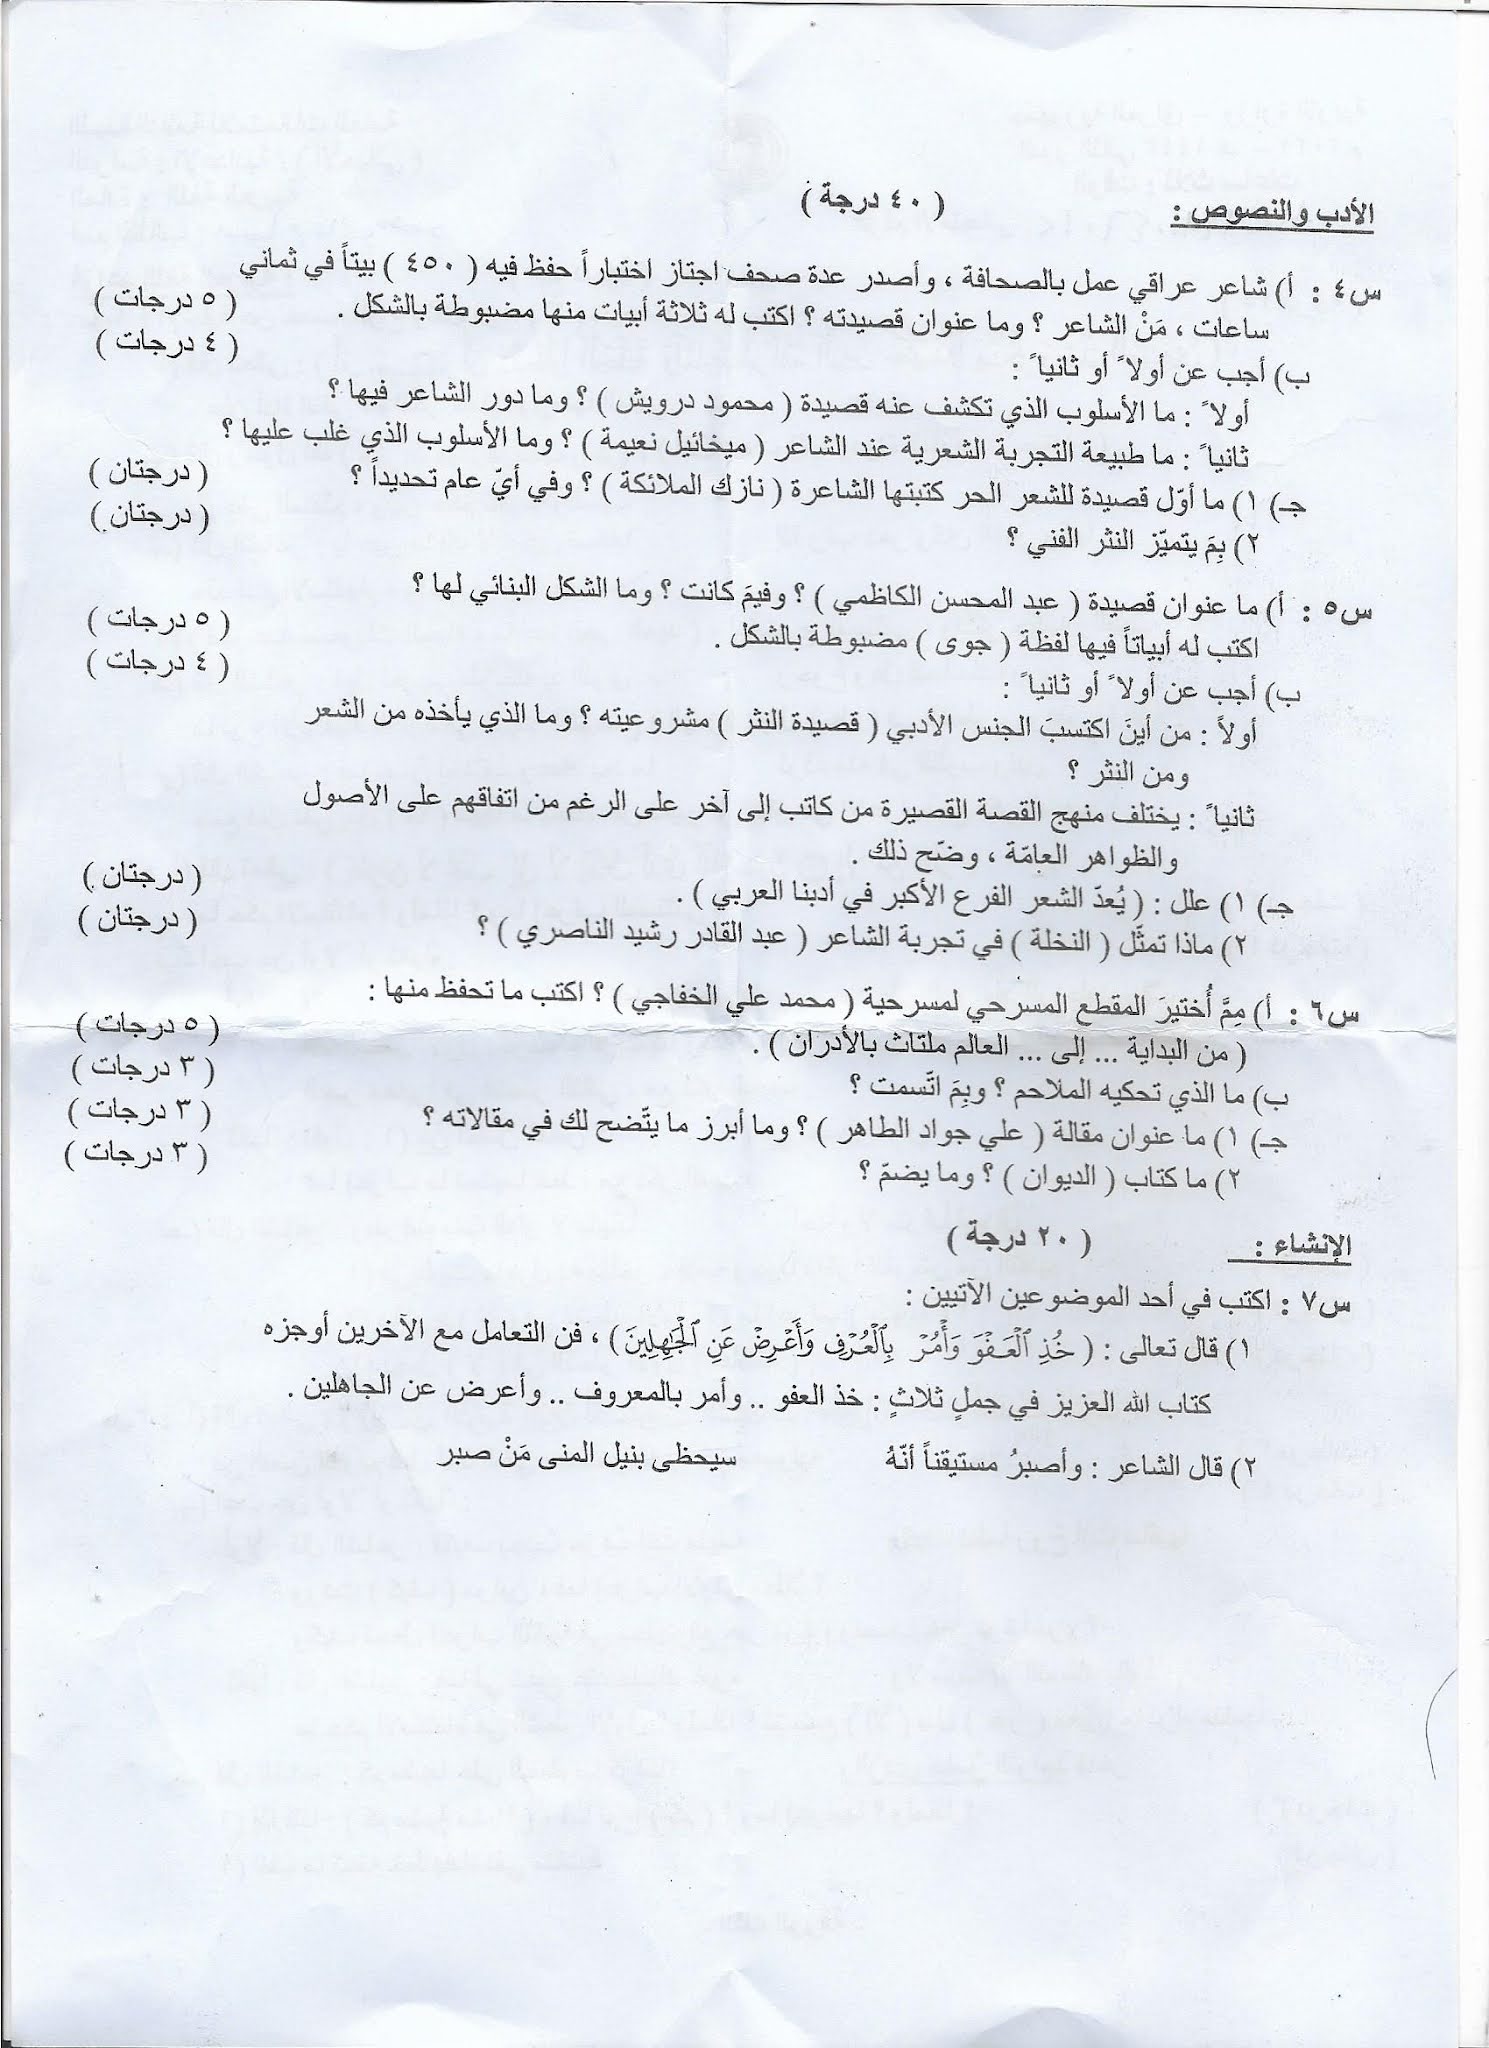 الأدب والنصوص : ( ٤٠ درجة )
س٤ : أ) شاعر عراقي عمل بالصحافة ، وأصدر عدة صحف اجتاز اختباراً حفظ فيه ( ٤٥٠ ) بيتاً في ثماني
ساعات ، مَنْ الشاعر ؟ وما عنوان قصيدته ؟ اكتب له ثلاثة أبيات منها مضبوطة بالشكل . ( ٥ درجات )
ب) أجب عن أولاً أو ثانياً : ( ٤ درجات )
أولاً : ما الأسلوب الذي تكشف عنه قصيدة ( محمود درويش ) ؟ وما دور الشاعر فيها ؟
ثانياً : ما طبيعة التجربة الشعرية عند الشاعر ( ميخائيل نعيمة ) ؟ وما الأسلوب الذي غلب عليها ؟
جـ) ١) ما أوّل قصيدة للشعر الحر كتبتها الشاعرة ( نازك الملائكة ) ؟ وفي أيّ عام تحديداً ؟ ( درجتان )
٢) بِمَ يتميّز النثر الفني ؟ ( درجتان )
س٥ : أ) ما عنوان قصيدة ( عبد المحسن الكاظمي ) ؟ وفيمَ كانت ؟ وما الشكل البنائي لها ؟
اكتب له أبياتاً فيها لفظة ( جوى ) مضبوطة بالشكل . ( ٥ درجات )
ب) أجب عن أولاً أو ثانياً : ( ٤ درجات )
أولاً : من أينَ اكتسبَ الجنس الأدبي ( قصيدة النثر ) مشروعيته ؟ وما الذي يأخذه من الشعر
ومن النثر ؟
ثانياً : يختلف منهج القصة القصيرة من كاتب إلى آخر على الرغم من اتفاقهم على الأصول
والظواهر العامّة ، وضّح ذلك .
جـ) ١) علل : ( يُعدّ الشعر الفرع الأكبر في أدبنا العربي ) . ( درجتان )
٢) ماذا تمثّل ( النخلة ) في تجربة الشاعر ( عبد القادر رشيد الناصري ) ؟ ( درجتان )
س٦ : أ) مِمَّ أُختيرَ المقطع المسرحي لمسرحية ( محمد علي الخفاجي ) ؟ اكتب ما تحفظ منها :
( من البداية ... إلى ... العالم ملتاث بالأدران ) . ( ٥ درجات )
ب) ما الذي تحكيه الملاحم ؟ وبِمَ اتّسمت ؟ ( ٣ درجات )
جـ) ١) ما عنوان مقالة ( علي جواد الطاهر ) ؟ وما أبرز ما يتّضح لك في مقالاته ؟ ( ٣ درجات )
٢) ما كتاب ( الديوان ) ؟ وما يضمّ ؟ ( ٣ درجات )
الإنشاء : ( ٢٠ درجة )
س٧ : اكتب في أحد الموضوعين الآتيين :
١) قال تعالى : ( خُذِ ٱلْعَفْوَ وَأْمُرْ بِٱلْعُرْفِ وَأَعْرِضْ عَنِ ٱلْجَٰهِلِينَ ) ، فن التعامل مع الآخرين أوجزه
كتاب الله العزيز في جملٍ ثلاثٍ : خذ العفو .. وأمر بالمعروف .. وأعرض عن الجاهلين .
٢) قال الشاعر : وأصبرُ مستيقناً أنّهُ سيحظى بنيل المنى مَنْ صبر